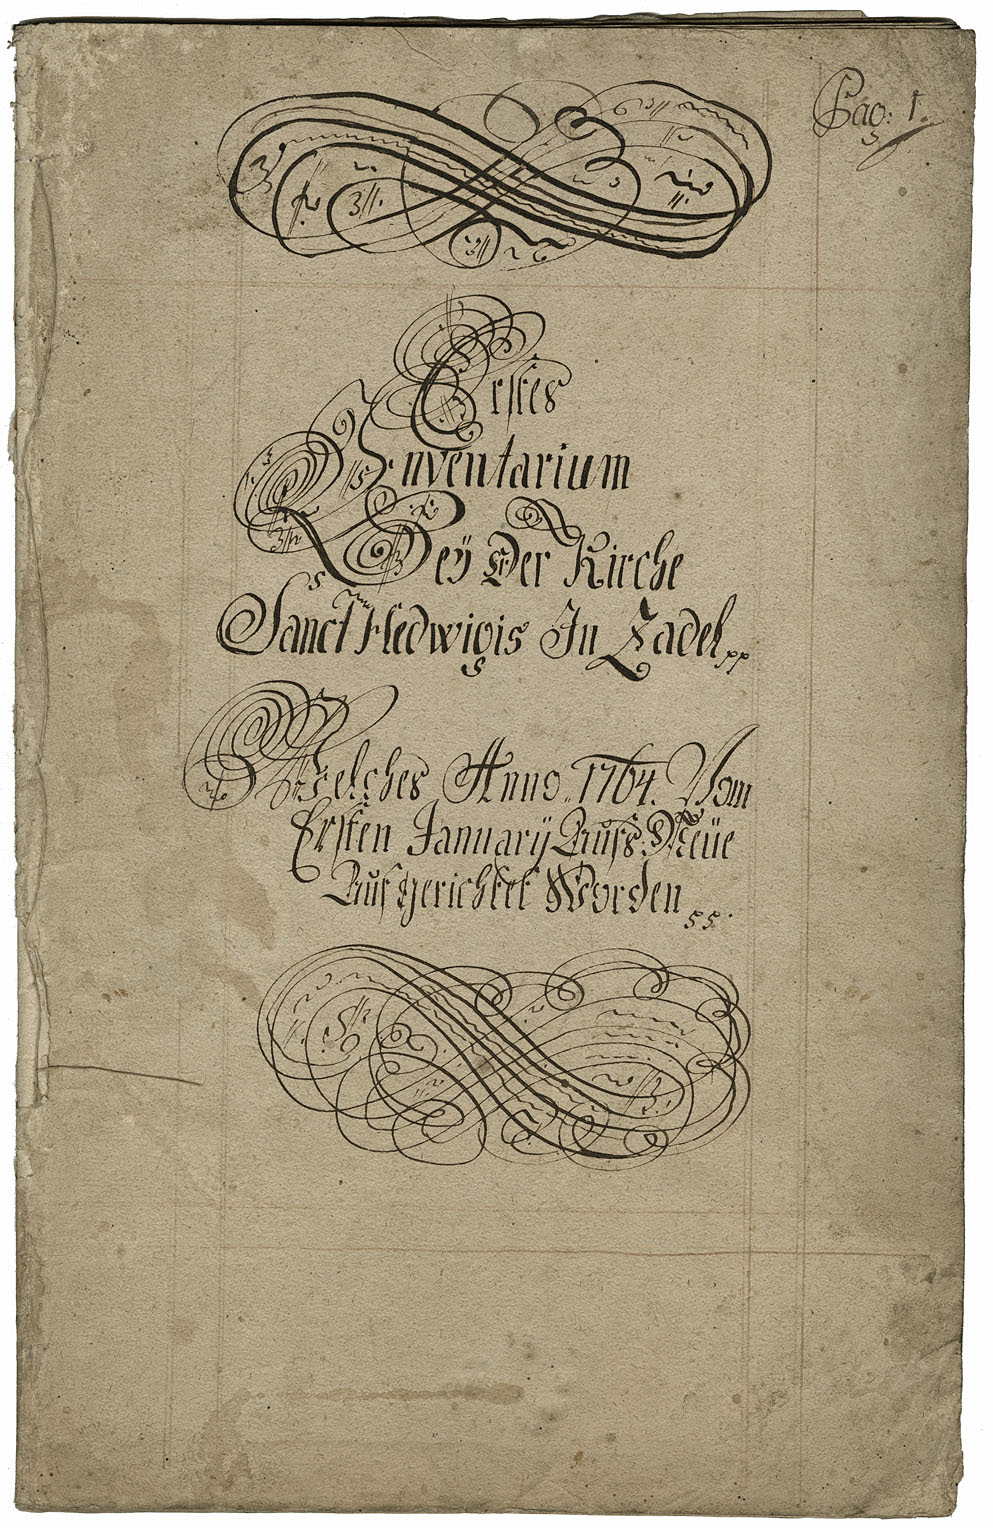 Pag: 1.
Erstes
Inventarium
Beÿ Der Kirche
Sanct Hedwigis In Zadel pp
Welches Anno 1764. Vom
Ersten Januarÿ Aufs Neüe
Aufgerichtet Worden